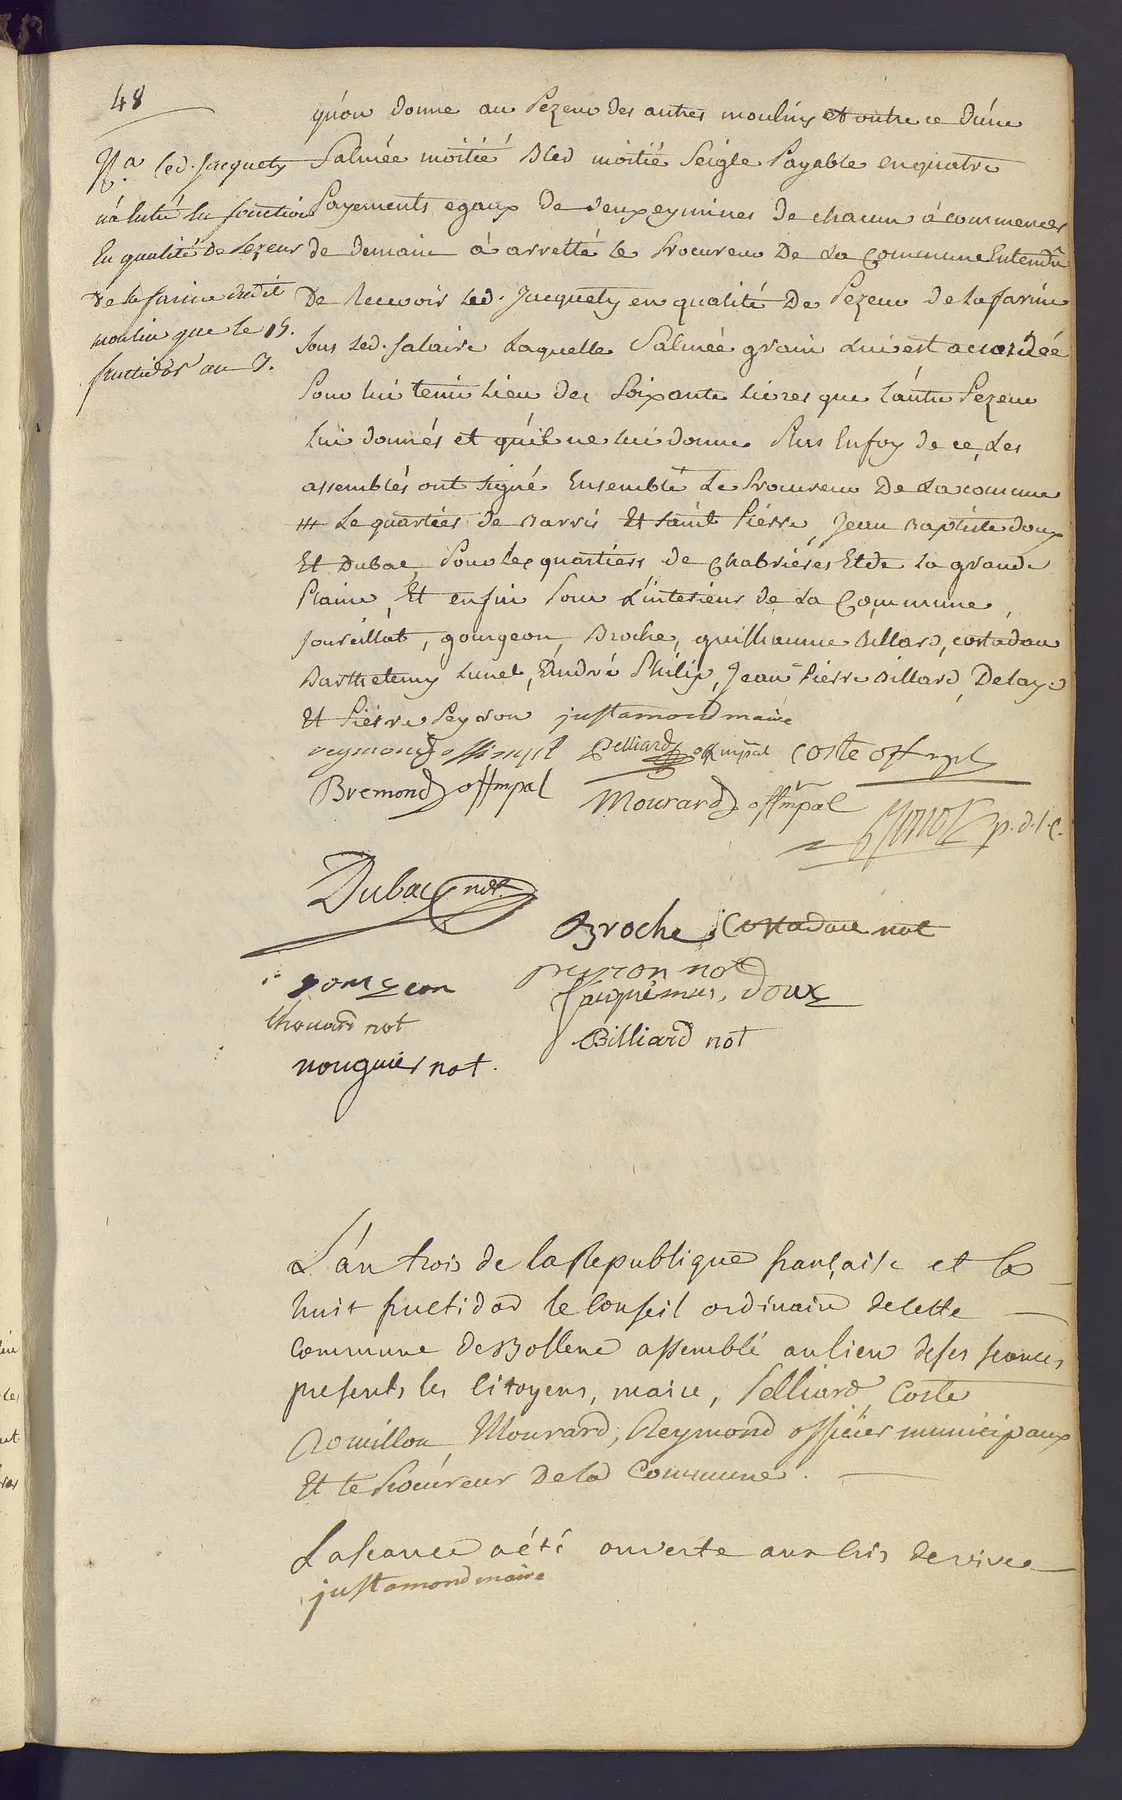 48
qu'on donne au Pezeur des autres moulins et outre ce d'une
Salmée moitié Bled moitié Seigle Payable en quatre
Payements egaux de deux eymines de chacun à commencer
de demain à arretté le Procureur De La Commune Entendû
De Recevoir Led. Jacquety en qualité De Pezeur de la farine
Sous Led. Salaire Laquelle Salmée grain Lui est accordéé
Pour lui tenir Lieu des Soixante Livres que L'autre Pezeur
lui donnés et qu'il ne lui donne Plus En foy de ce, Les
assemblés ont Signé Ensemble Le Procureur De La comune
Le quartier de Barris Et Saint Piérre, Jean Baptiste doux
Et Dubac, Pour les quartiers de Chabriéres Et de La grande
Plaine, Et enfin Pour L'interieur de La Commune,
gourgeon, Broche, guilliaume Billard, costadau
Barthelemy Lunel, André Philip, Jean Piérre Billard, Delaye
Et Piérre Peyron justamond maire
reymond off mpl Pelliard off mpal Coste off mpl
Bremond off mpal Mourard off mpal
p. d. l. C.
Dubac not
Broche Costadau not
gourgeon peyron not
Jacquemus doux
Chouard not
Billiard not
nouguier not.
N.a led. Jacquety
n'a la fonction
En qualité de Pezeur
de la farine dudit
moulin que le 15.
fructidor an 3.
L'an trois de la Republique française et le
huit fructidor le Conseil ordinaire de cette
Commune de Bollene assemblé au lieu de ses seances
presents les Citoyens, maire, Pelliard, Coste
Romillon, Mourard, Reymond officier municipaux
Et le Procureur De la Commune.
La seance a été ouverte aux Cris de vive
justamond maire